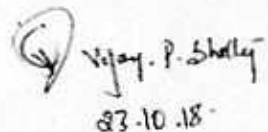 Vijay. P. Shetty
23.10.18.